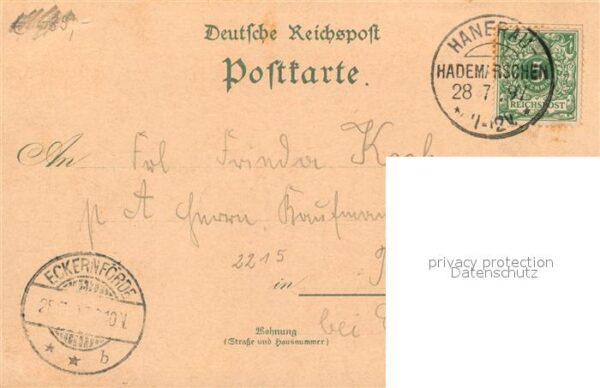 Deutsche Reichspost
Postkarte.
HANERAU
HADEMARSCHEN
28 7 97
* 11-12V. *
5
REICHSPOST
An Frl Frieda Koch
p A Herrn Kaufmann
2215
in
bei
ECKERNFÖRDE
10V.
* * b
Wohnung
(Straße und Hausnummer)
privacy protection
Datenschutz